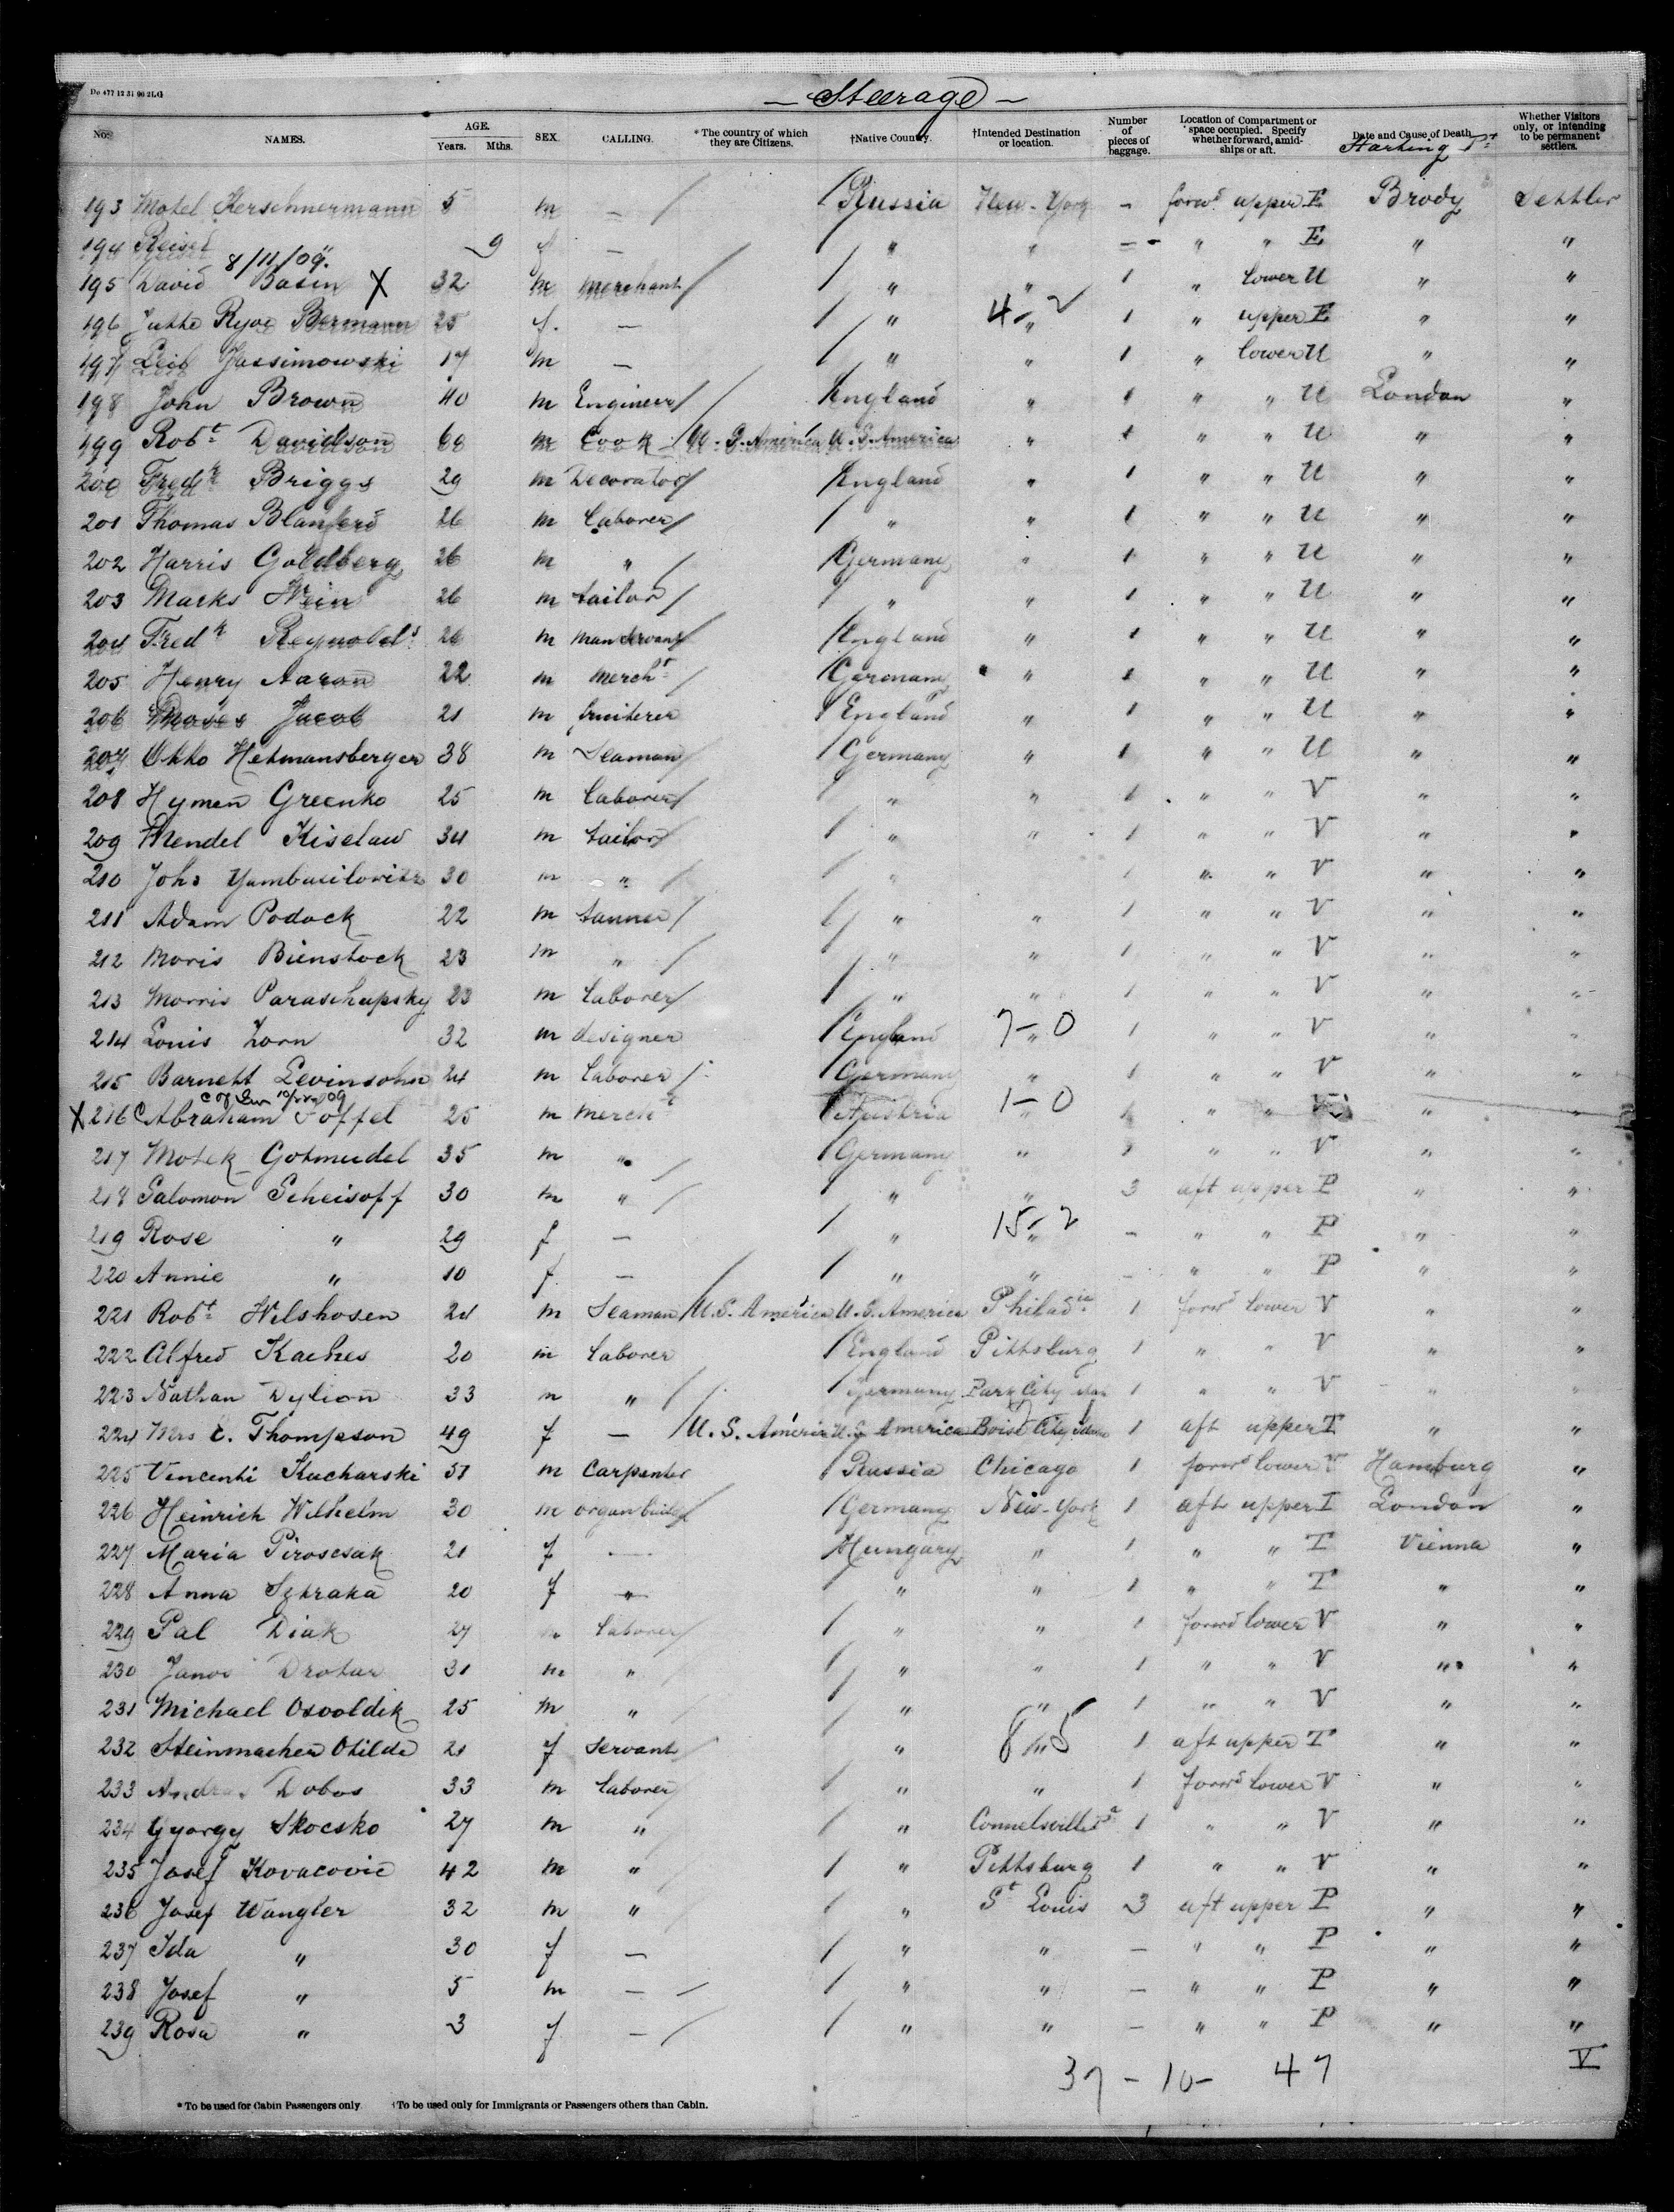 Do 477 12 31 00 2LG
— Steerage —
No. NAMES. AGE. Years. Mths. SEX. CALLING. *The country of which they are Citizens. †Native Country. †Intended Destination or location. Number of pieces of baggage. Location of Compartment or space occupied. Specify whether forward, amidships or aft. Date and Cause of Death Whether Visitors only, or intending to be permanent settlers.
Starting Pt
193 Motel Kerschnermann 5 m — / Russia New-York — forwd upper E Brody Settler
194 Reisel " 9 f — / " " — " " E " "
8/11/09.
195 David Basin X 32 m merchant / " " 1 " lower U " "
4-2
196 Jutte Ryve Bermann 25 f. — / " " 1 " upper E " "
197 Leib Jassimowski 17 m — / " " 1 " lower U " "
198 John Brown 40 m Engineer / / England " 1 " " U London "
199 Robt Davidson 60 m Cook U.S. America U.S. America " 1 " " U " "
200 Fredk Briggs 29 m Decorator / England " 1 " " U " "
201 Thomas Blanford 26 m Laborer / " " 1 " " U " "
202 Harris Goldberg 26 m " / Germany " 1 " " U " "
203 Marks Wein 26 m tailor / " " 1 " " U " "
204 Fredk Reynolds 26 m man servant / England " 1 " " U " "
205 Henry Aaron 22 m mercht / Germany " 1 " " U " "
206 Moses Jacob 21 m fruiterer / England " 1 " " U " "
207 Otto Hetmansberger 38 m Seaman / Germany " 1 " " U " "
208 Hymen Greenko 25 m Laborer / " " 1 " " V " "
209 Mendel Kiselaw 34 m tailor / " " 1 " " V " "
210 Johs 30 m " / " 1 " " V " "
211 Adam Podock 22 m tanner / " " 1 " " V " "
212 Moris Bienstock 23 m " / " " 1 " " V " "
213 Morris Paraschapsky 23 m Laborer / " " 1 " " V " "
7-0
214 Louis Zorn 32 m designer / England " 1 " " V " "
215 Barnett Levinsohn 24 m Laborer / Germany " 1 " " V " "
1-0
X 216 Abraham Toffel 25 m mercht / Austria 1 " " V " "
217 Motek Gotmudel 35 m " / Germany " 1 " " V " "
218 Salomon Scheisoff 30 m " / " " 3 aft upper P " "
15-2
219 Rose " 29 f — / " " — " " P " "
220 Annie " 10 f. — / " " — " " P " "
221 Robt Welshosen 24 m Seaman / U.S. America U.S. America Philadia 1 forwd lower V " "
222 Alfred Kaches 20 m Laborer / England Pittsburg 1 " " V " "
223 Nathan Dylion 33 m " / / Germany Park City 1 " " V " "
224 Mrs C. Thompson 49 f — / U.S. America U.S. America Boise City Idaho 1 aft upper T " "
225 Vincenti Kucharski 51 m Carpenter / Russia Chicago 1 forwd lower V Hamburg "
226 Heinrich Wilhelm 30 m organ builder / Germany New-York 1 aft upper T London "
227 Maria Piroscsak 21 f — / Hungary " 1 " " T Vienna "
228 Anna Sztraka 20 f " / " " 1 " " T " "
229 Pal Diak 27 m Laborer / " " 1 forwd lower V " "
230 Janos Drotar 31 m " / " " 1 " " V " "
231 Michael Osvoldik 25 m " / " " 1 " " V " "
8-5
232 Steinmacher Otilde 21 f Servant / " " 1 aft upper T " "
233 Andras Dobos 33 m Laborer / " " 1 forwd lower V " "
234 Gyorgy Skocsko 27 m " / " Connelsville Pa 1 " " V " "
235 Josef Kovacovic 42 m " / " Pittsburg 1 " " V " "
236 Josef Wangler 32 m " / " St Louis 3 aft upper P " "
237 Ida " 30 f — / " " — " " P " "
238 Josef " 5 m — / " " — " " P " "
239 Rosa " 3 f — / " " — " " P " "
37 - 10 - 47 V
*To be used for Cabin Passengers only. †To be used only for Immigrants or Passengers others than Cabin.